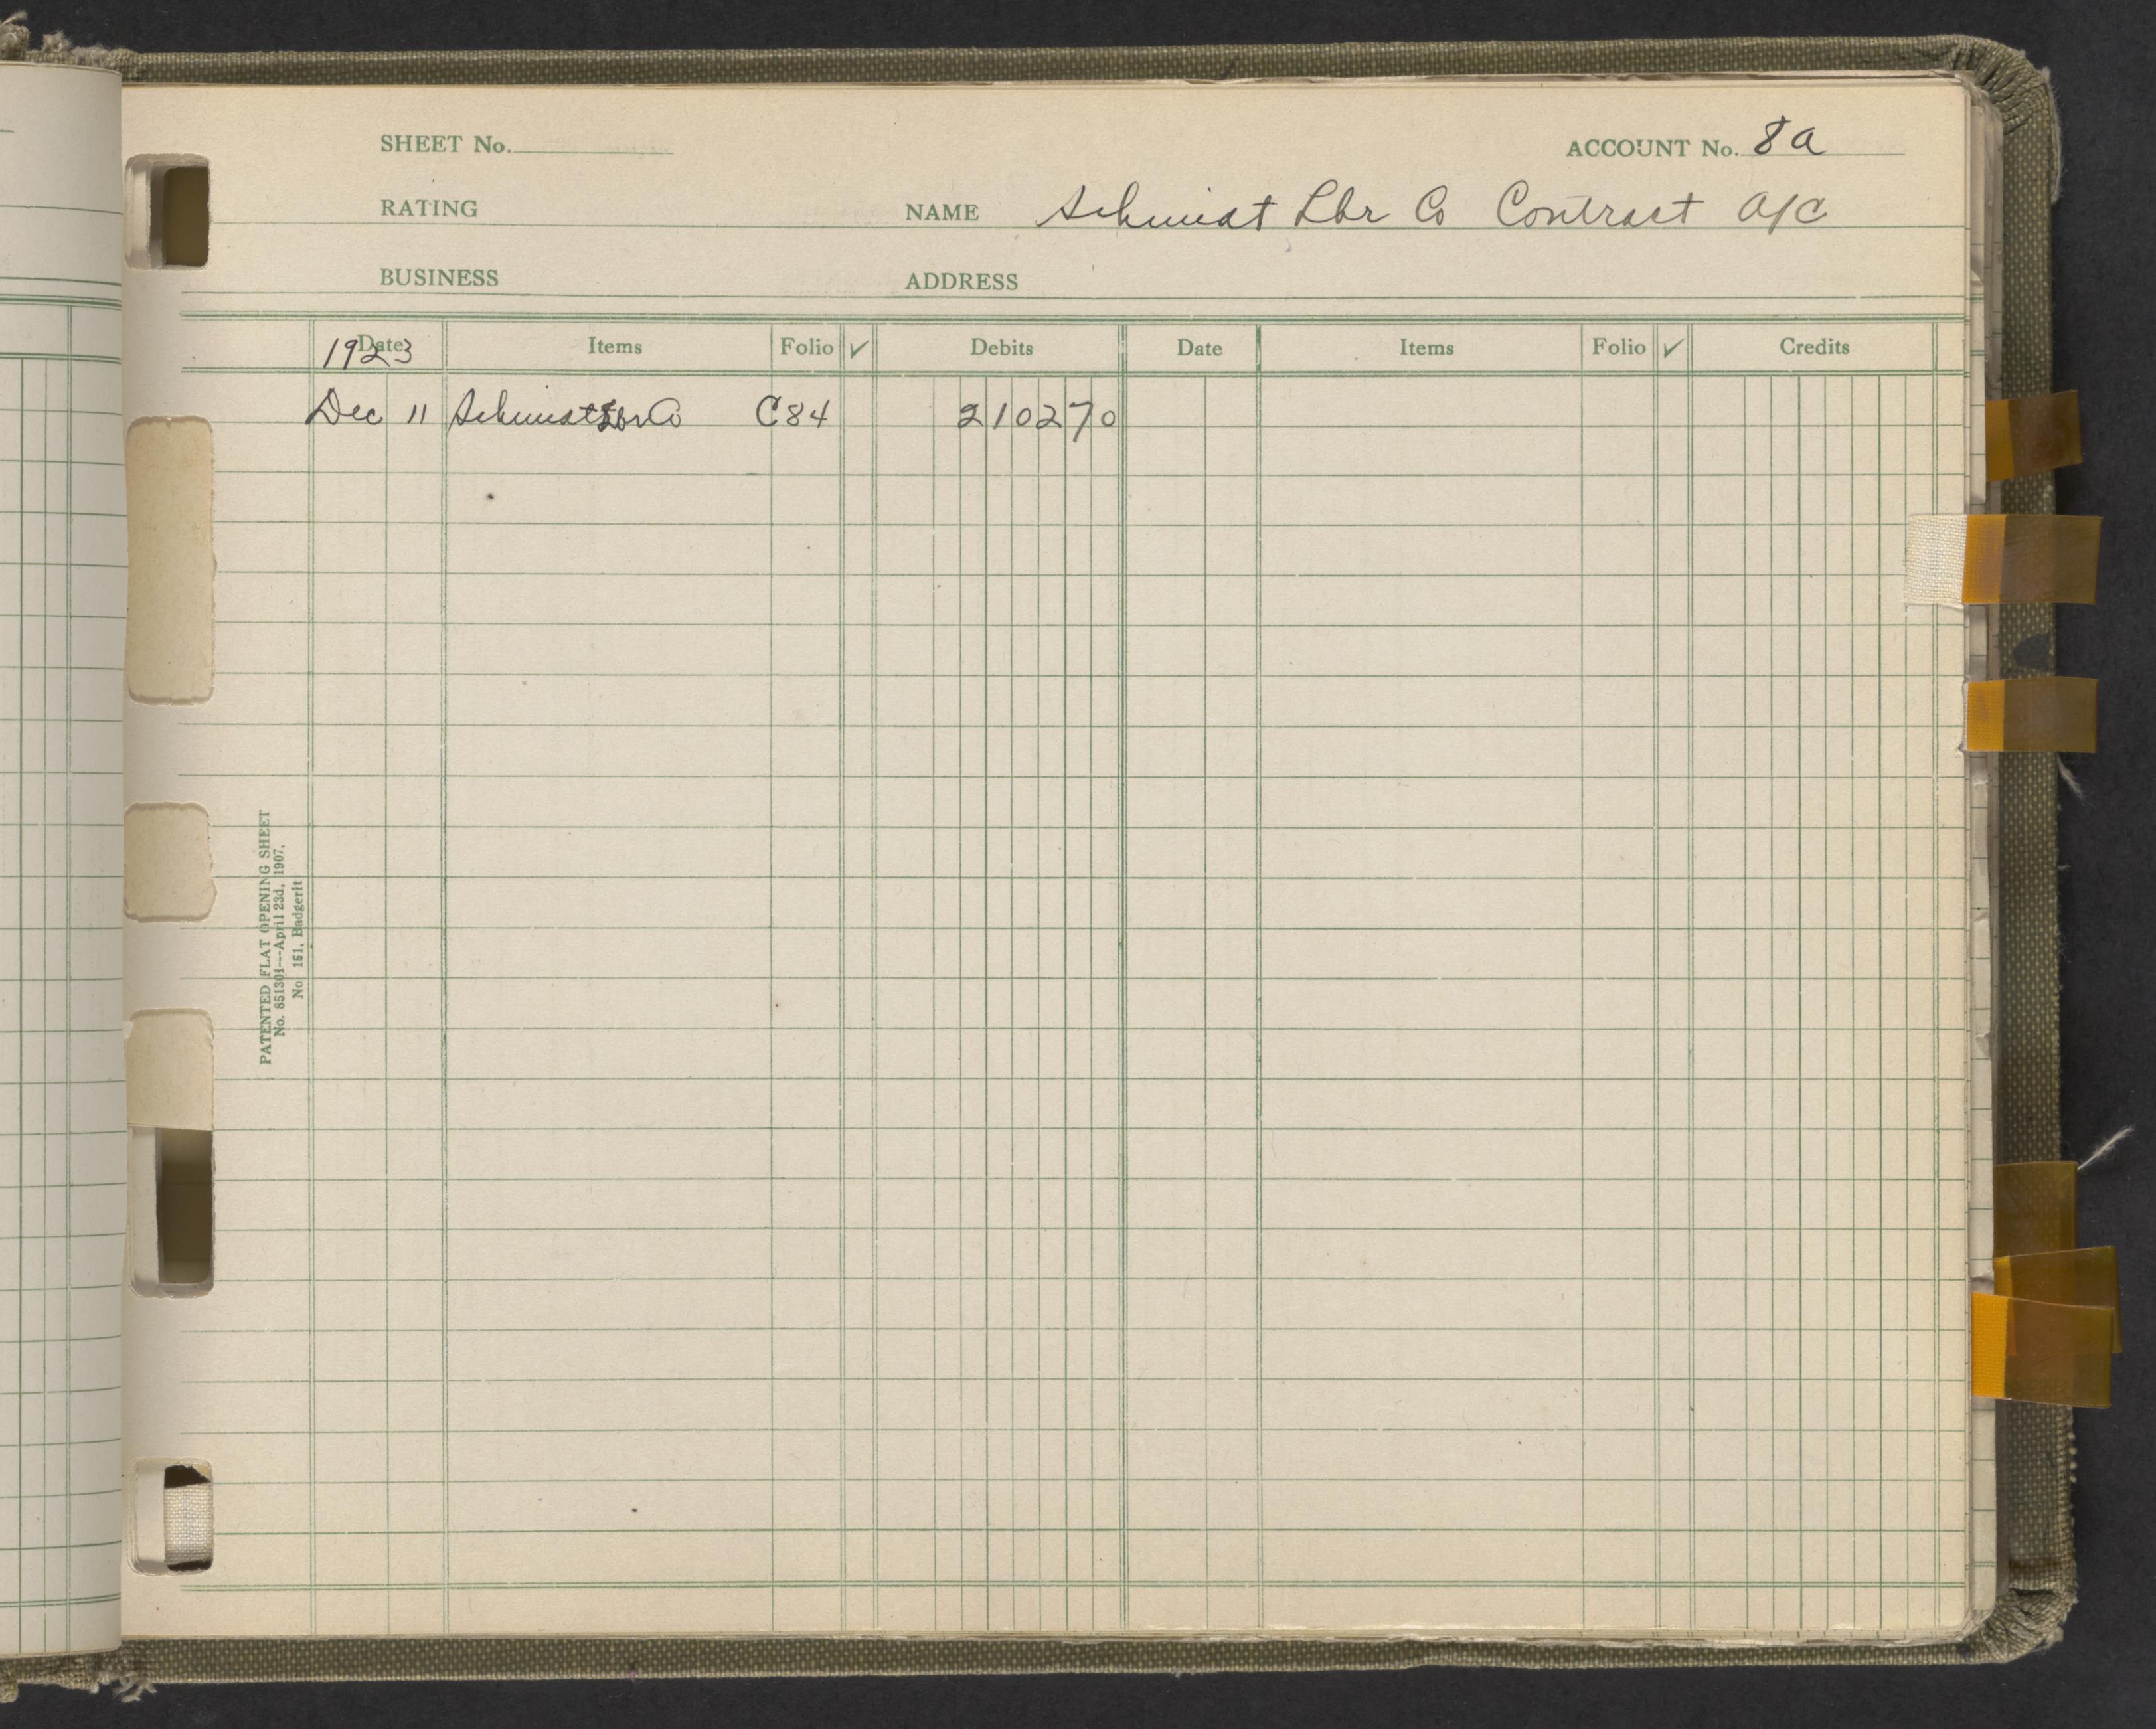 SHEET No. ACCOUNT No. 8a
RATING NAME Schmidt Lbr Co Contract A/C
BUSINESS ADDRESS
Date Items Folio ✓ Debits Date Items Folio ✓ Credits
1923
Dec 11 Schmidt Lbr Co C84 210270
PATENTED FLAT OPENING SHEET
No. 851301—April 23d, 1907.
No. 151. Badgerit